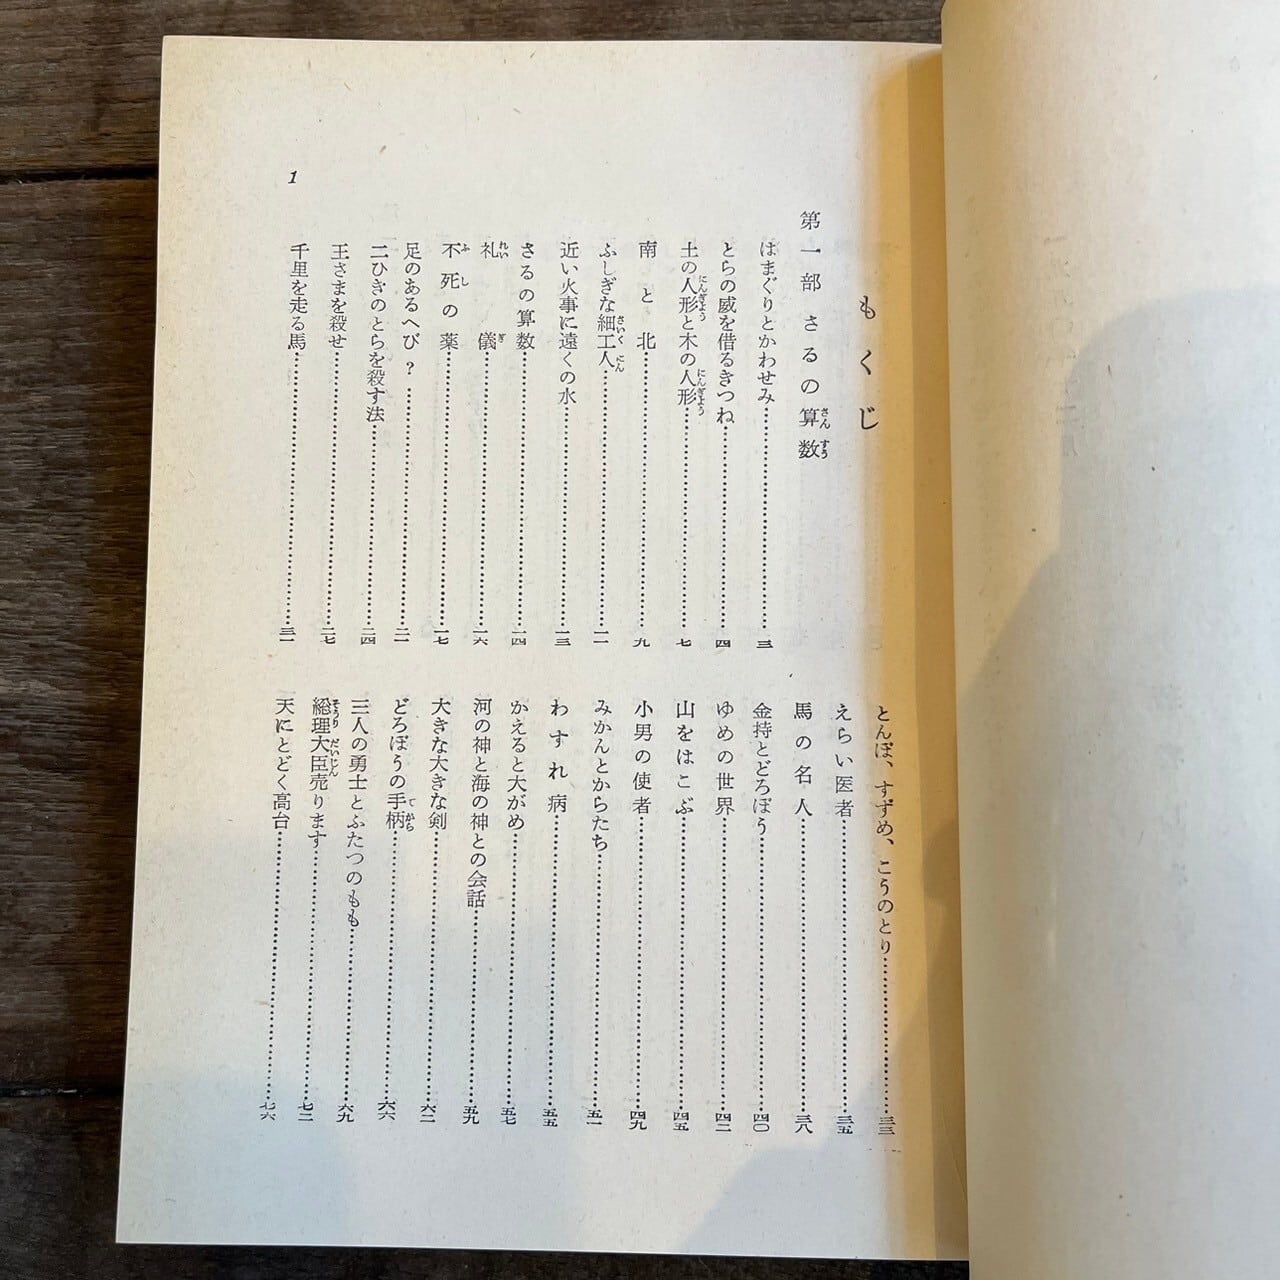 もくじ
第一部 さるの算数
はまぐりとかわせみ……三
とらの威を借るきつね……四
土の人形と木の人形……七
南と北……九
ふしぎな細工人……一一
近い火事に遠くの水……一三
さるの算数……一四
礼儀……一六
不死の薬……一七
足のあるへび？……二一
二ひきのとらを殺す法……二四
王さまを殺せ……二七
千里を走る馬……三一
とんぼ、すずめ、こうのとり……三三
えらい医者……三五
馬の名人……三八
金持とどろぼう……四〇
ゆめの世界……四二
山をはこぶ……四五
小男の使者……四九
みかんとからたち……五一
わすれ病……五五
かえると大がめ……五七
河の神と海の神との会話……五九
大きな大きな剣……六二
どろぼうの手柄……六六
三人の勇士とふたつのもも……六九
総理大臣売ります……七二
天にとどく高台……七六
1